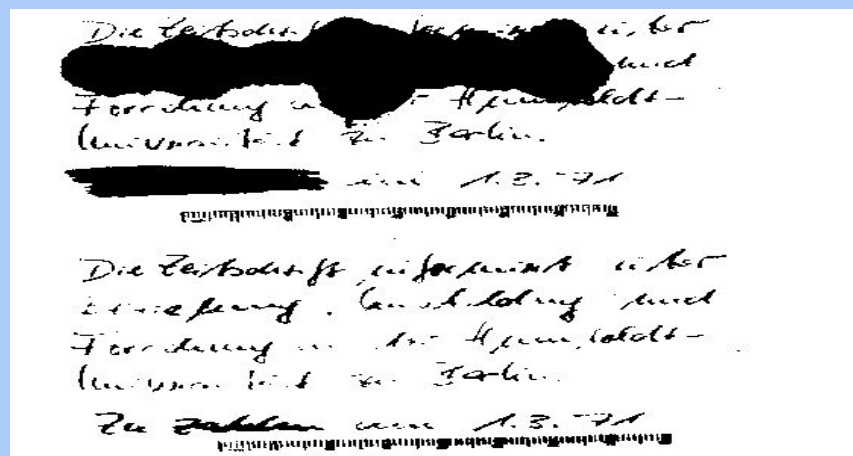 Die Zeitschrift über
und
Forschung Humboldt-
Universität zu Berlin.
am 1.3.71
Die Zeitschrift informiert über
Erziehung, Ausbildung und
Forschung an der Humboldt-
Universität zu Berlin.
Zu zahlen am 1.3.71